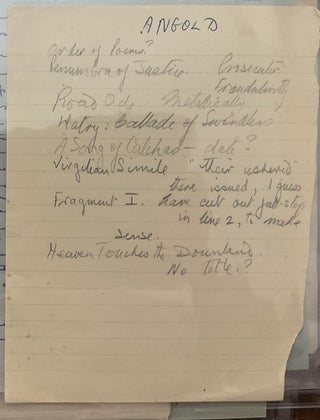 ANGOLD.
Order of Poems?
Penumbra of Justice. Prosecutor
Fraudulently
Road Ode Metallically
Watoy: Ballade of Swindlers
A Song of Calchas — date?
Virgilian Simile "Their ushered"
there issued, I guess
Fragment I. have cut out full-stop
in line 2, to make
sense.
Heaven Touches the Downland.
No title?